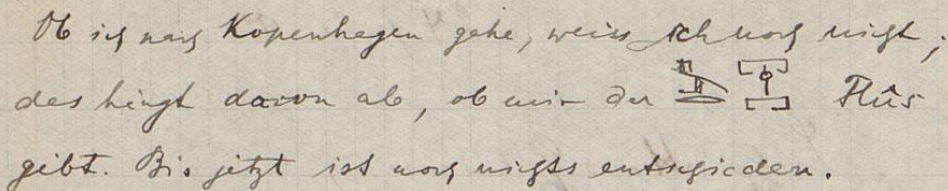 Ob ich nach Kopenhagen gehe, weiss ich noch nicht;
das hängt davon ab, ob mir der Flûs
gibt. Bis jetzt ist noch nichts entschieden.